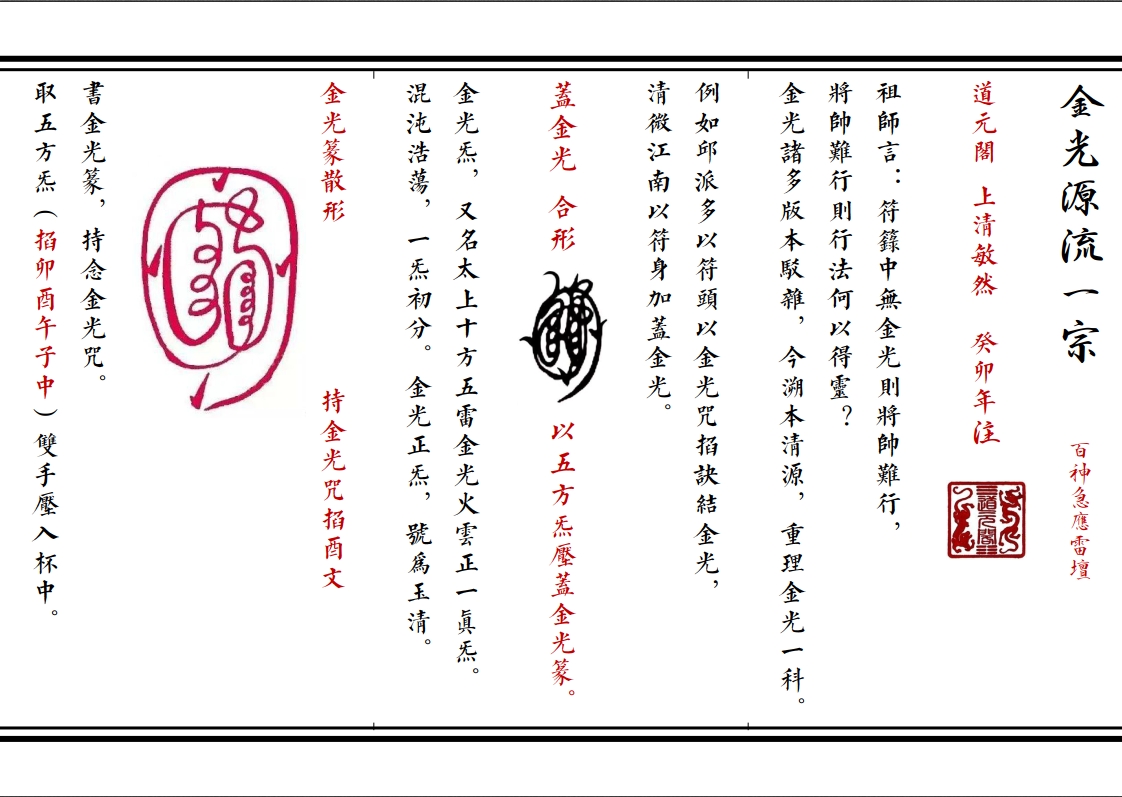 金光源流一宗
百神急應雷壇
道元閣 上清敏然 癸卯年注
道元閣
祖師言：符籙中無金光則將帥難行，
將帥難行則行法何以得靈？
金光諸多版本駁雜，今溯本清源，重理金光一科。
例如邱派多以符頭以金光咒掐訣結金光，
清微江南以符身加蓋金光。
蓋金光 合形
以五方炁壓蓋金光篆。
金光炁，又名太上十方五雷金光火雲正一眞炁。
混沌浩蕩，一炁初分。金光正炁，號為玉清。
金光篆散形
持金光咒掐酉文
書金光篆，持念金光咒。
取五方炁（掐卯酉午子中）雙手壓入杯中。